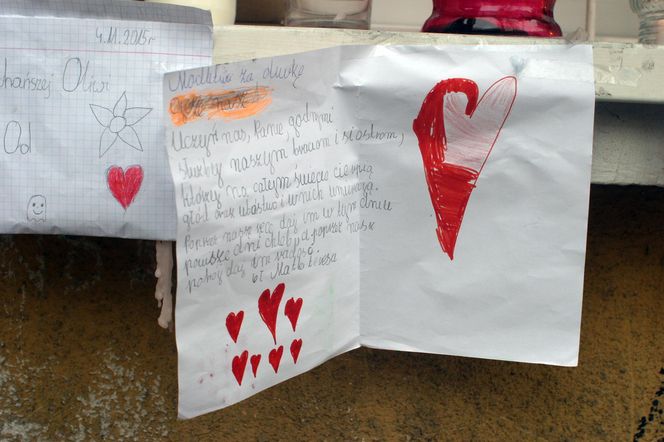 4.11.2015r
chańszej Oliwi
Od
Modlitwa za oliwkę
Uczyń nas, Panie, godnymi
służby naszym braciom i siostrom,
którzy na całym świecie cierpią
głód oraz ubóstwo i w nich umierają.
Poprzez nasze ręce daj im w tym dniu
powszedni chleb a poprzez nasze
radość.
św Matka Teresa